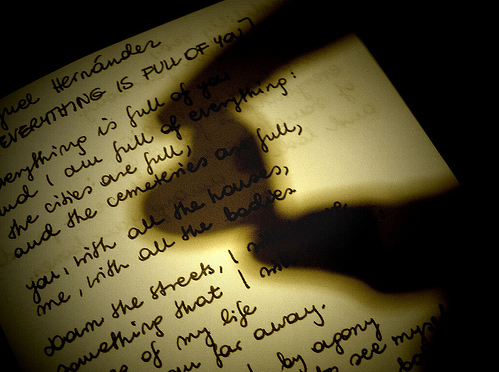 guel Hernández
EVERYTHING IS FULL OF YOU]
verything is full of you
and I am full of everything:
the cities are full,
and the cemeteries are full,
you, with all the houses,
me, with all the bodies
down the streets, I
something that I
of my life
far away.
by agony
to see myse